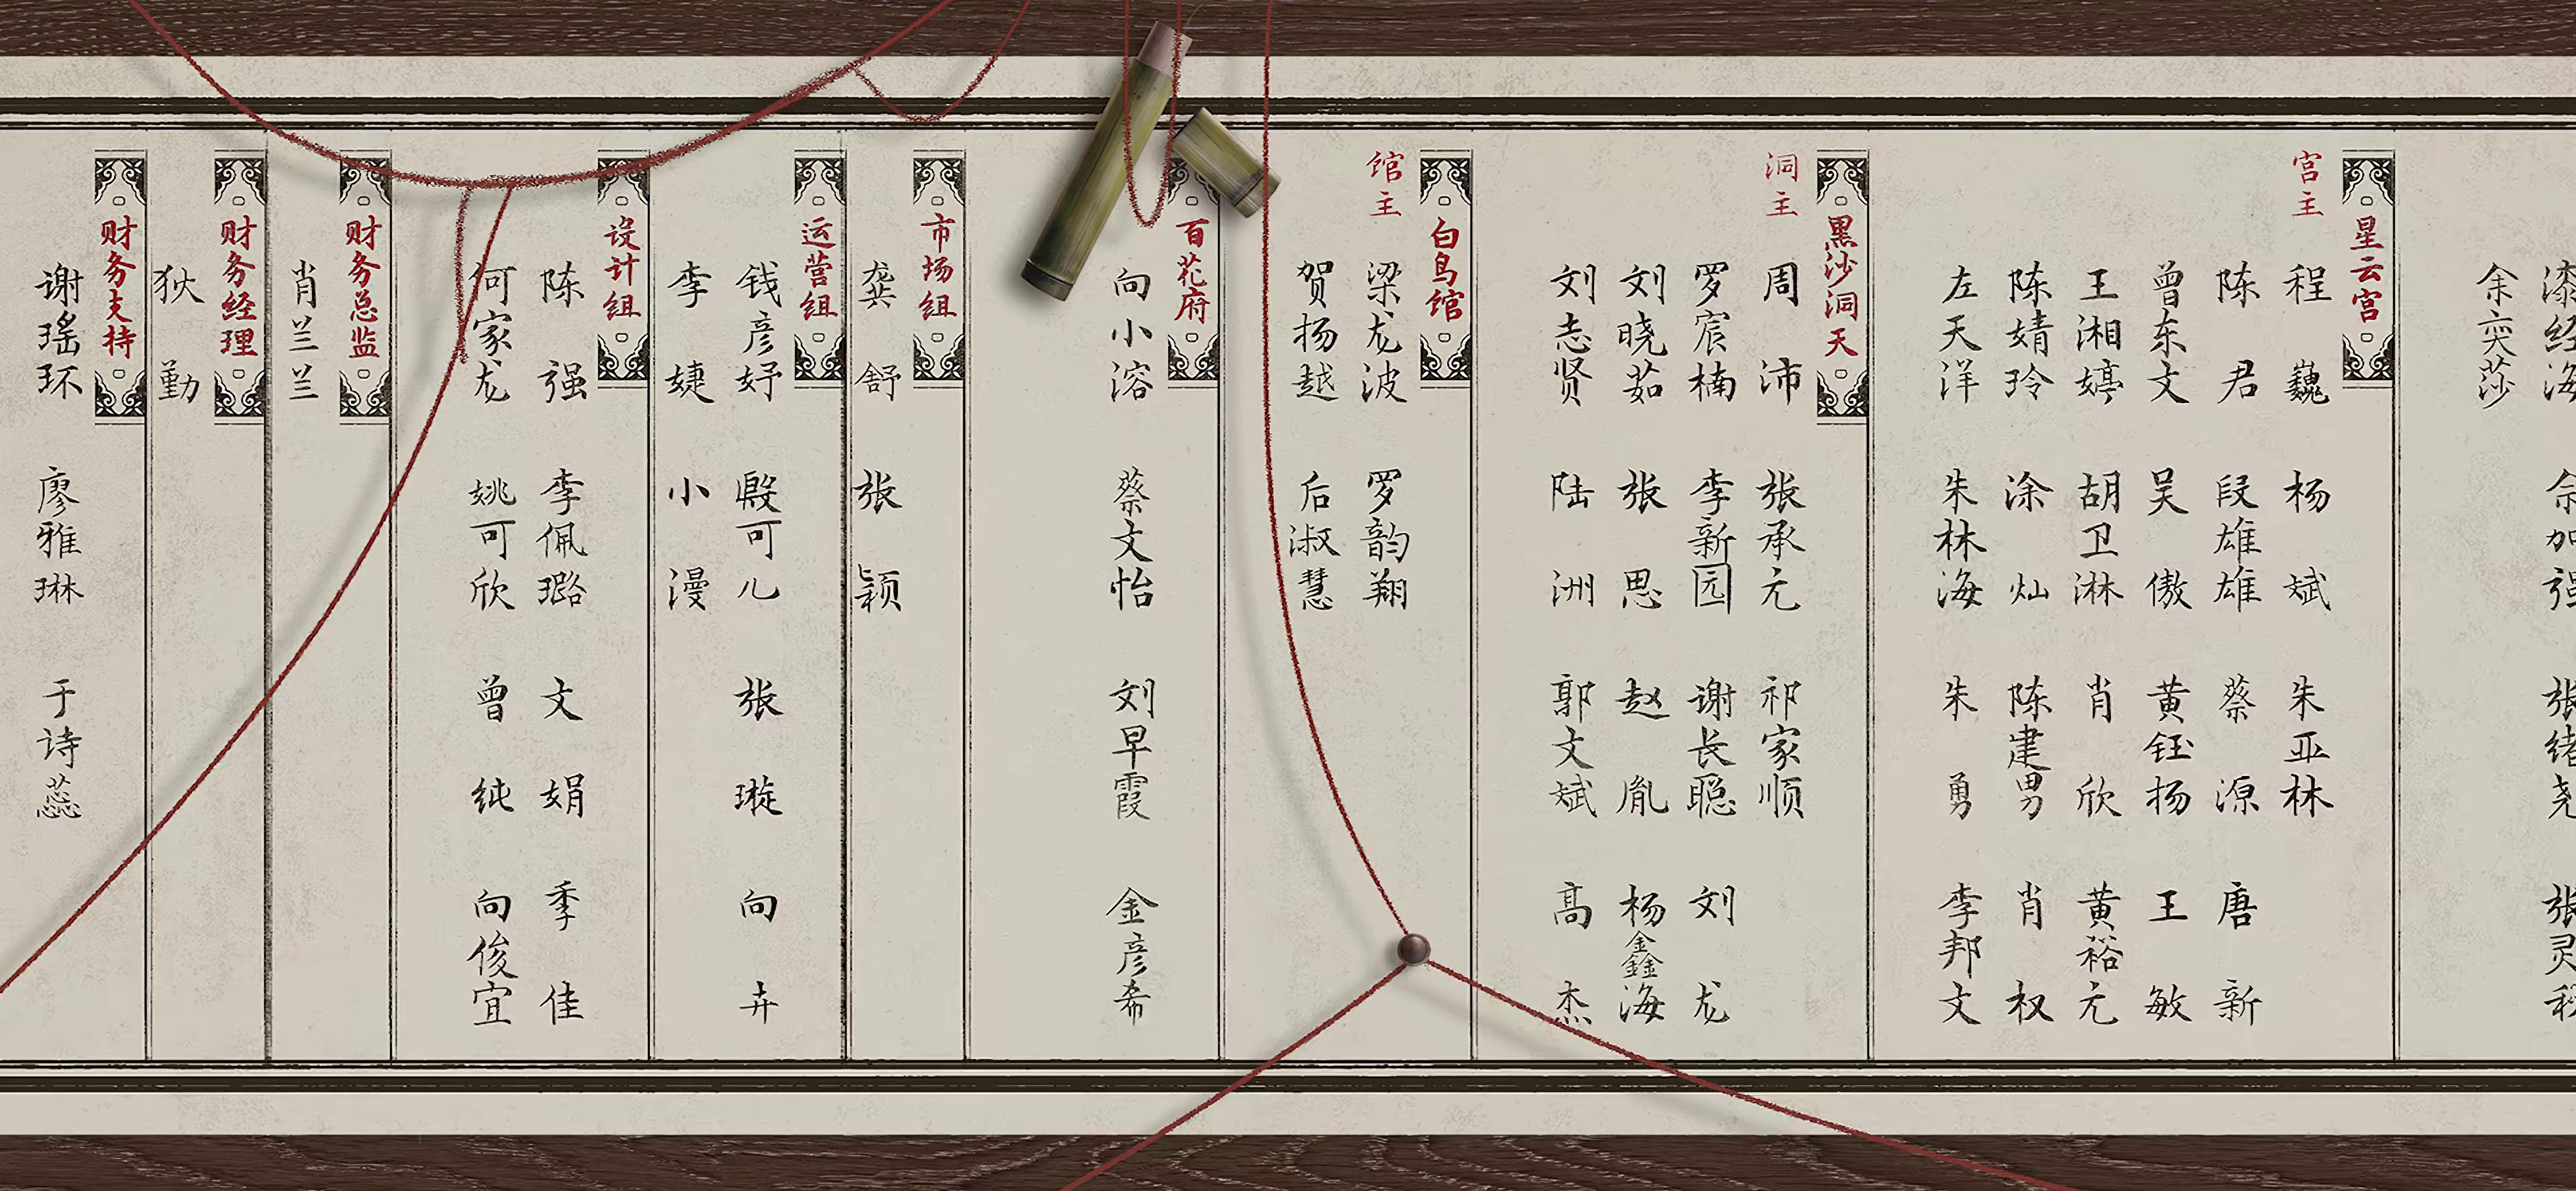 余奕莎
星云宫
宫主
程巍 杨斌 朱亚林
陈君 段雄雄 蔡源 唐新
曾东文 吴傲 黄钰扬 王敏
王湘婷 胡卫淋 肖欣 黄裕元
陈婧玲 涂灿 陈建男 肖权
左天洋 朱林海 朱勇 李邦文
黑沙洞天
洞主
周沛 张承元 祁家顺
罗宸楠 李新园 谢长聪 刘龙
刘晓茹 张思 赵胤 杨鑫海
刘志贤 陆洲 郭文斌 高杰
白鸟馆
馆主
梁龙波 罗韵翔
贺扬越 后淑慧
百花府
向小溶 蔡文怡 刘早霞 金彦希
市场组
龚舒 张颖
运营组
钱彦妤 殷可儿 张璇 向卉
李婕 小漫
设计组
陈强 李佩璐 文娟 季佳
何家龙 姚可欣 曾纯 向俊宜
财务总监
肖兰兰
财务经理
狄勤
财务支持
谢瑶环 廖雅琳 于诗蕊